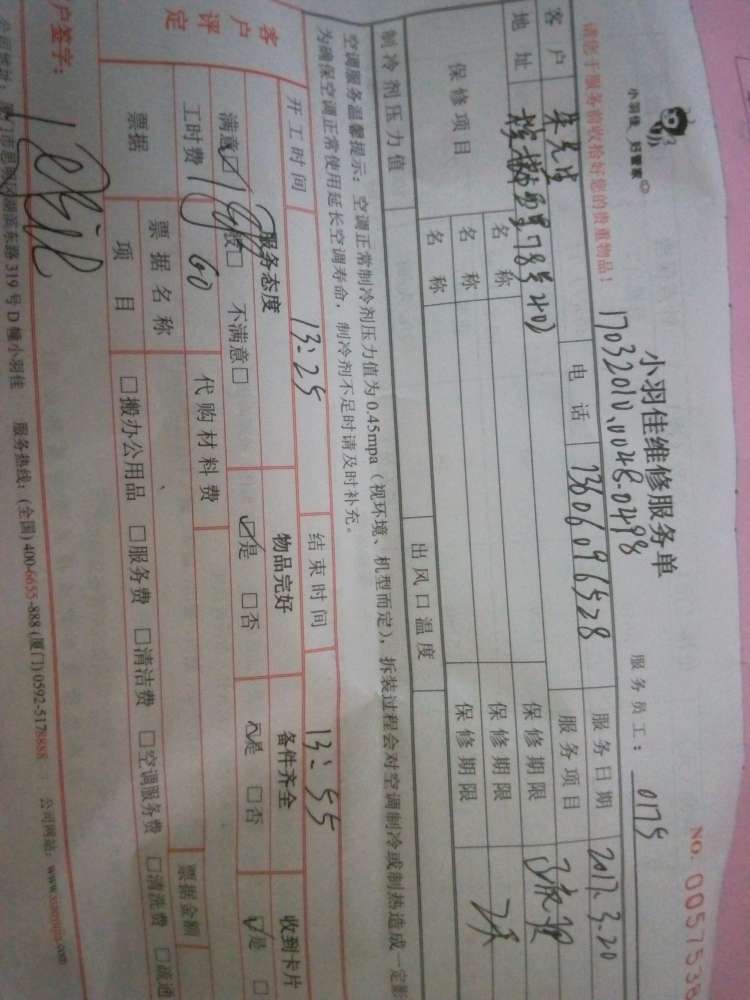 小羽佳 好管家
小羽佳维修服务单
NO. 0057538
17032010.0048-0498
服务员工: 0175
请您于服务前收拾好您的贵重物品!
客户 朱先生 电话 13606096528 服务日期 2017.3.20
地址 78号401 服务项目
保修项目 名称 保修期限
名称 保修期限
名称 保修期限
制冷剂压力值 出风口温度
空调服务温馨提示: 空调正常制冷剂压力值为0.45mpa(视环境、机型而定), 拆装过程会对空调制冷或制热造成一定影
为确保空调正常使用延长空调寿命, 制冷剂不足时请及时补充。
开工时间 13:25 结束时间 13:55
客户评定 服务态度 物品完好 备件齐全 收到卡片
满意☑ 较□ 不满意□ ☑是 □否 ☑是 □否 ☑是 □
工时费 60 代购材料费
票据 票据名称 票据金额
项目 □搬办公用品 □服务费 □清洁费 □空调服务费 □清洗费 □疏通
户签字:
公司地址: 厦门市思明区湖滨东路319号D幢小羽佳 服务热线: (全国)400-6655-888 (厦门)0592-5178888 公司网站: www.xiaoyujia.com